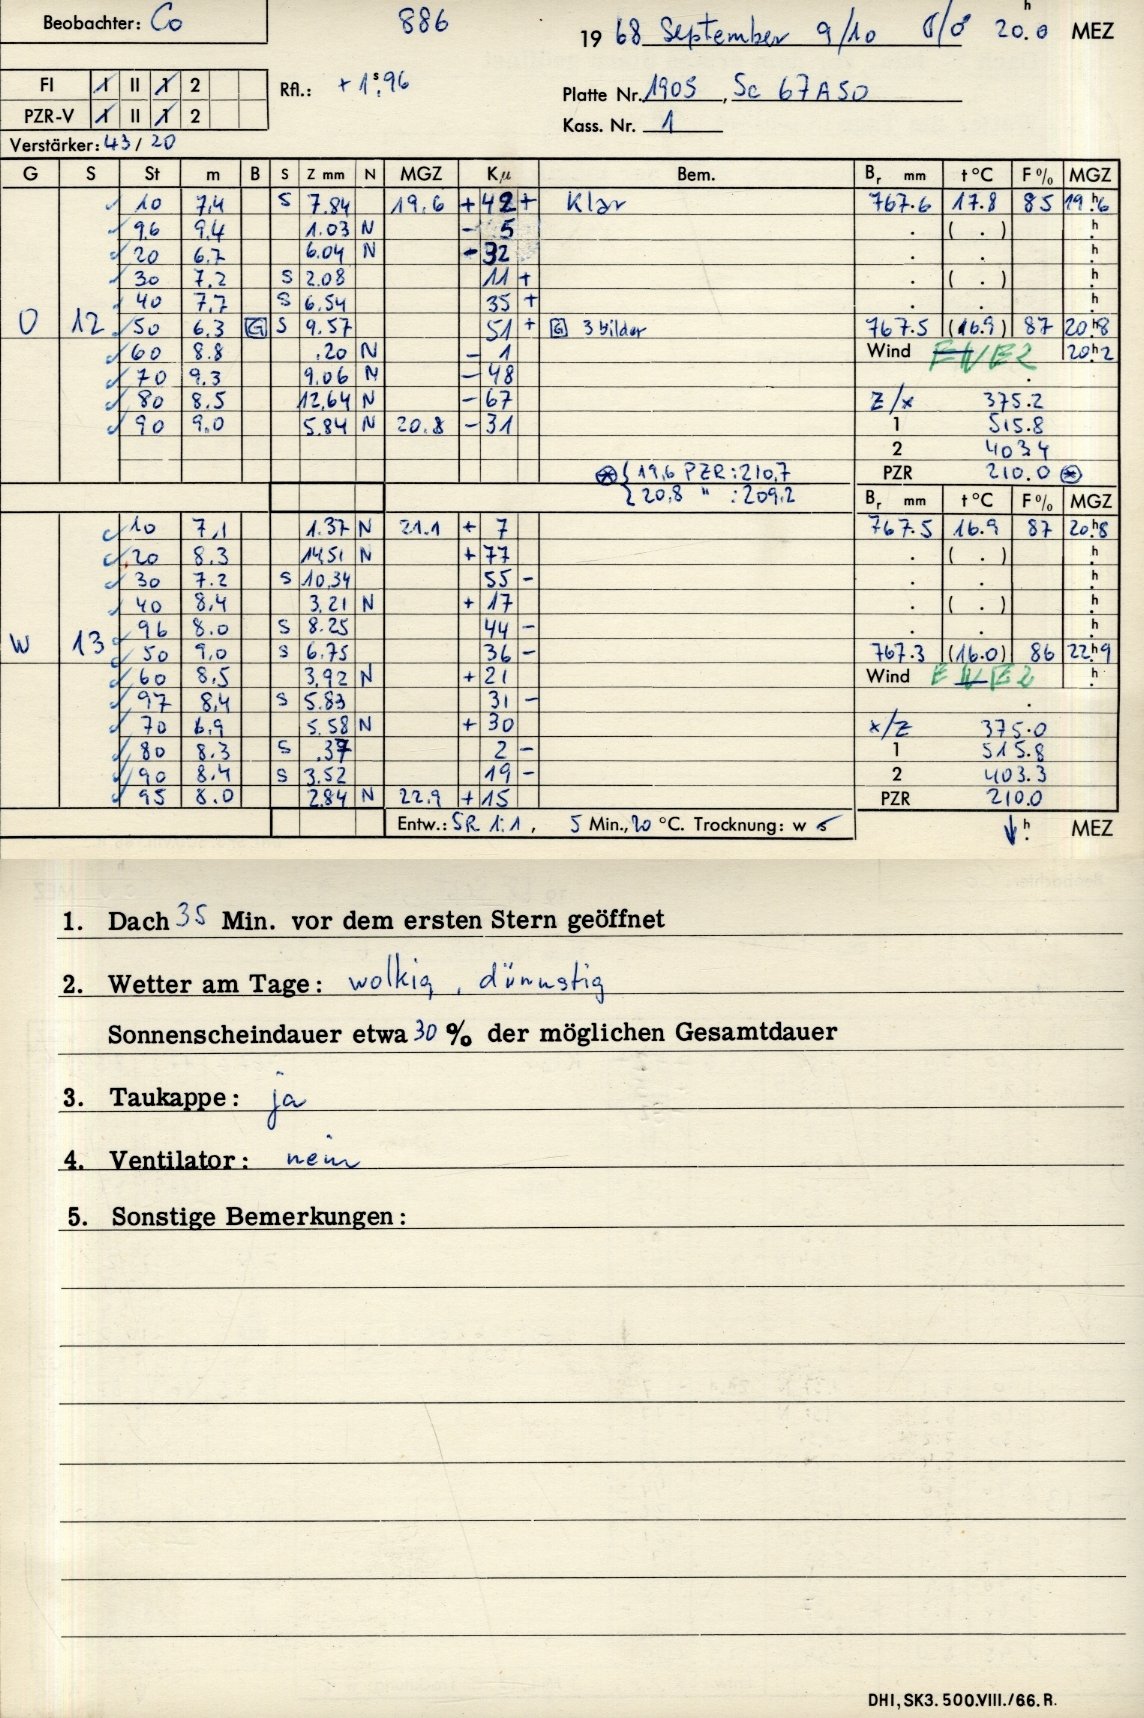 Beobachter: Co
886
1968 September 9/10 20.0 h MEZ
FI 1 II 1 2
Rfl.: + 1ˢ.96
Platte Nr. 1905, Sc 67A50
PZR-V 1 II 1 2
Kass. Nr. 1
Verstärker: 43/20
G S St m B S Z mm N MGZ Kμ Bem. Br mm t°C F% MGZ
10 7,4 S 7.84 19,6 +42+ Klar 767.6 17.8 85 19.h6
96 9.4 1.03 N -5 . ( . ) h
20 6.7 6.04 N -32 . . h
30 7.2 S 2.08 11+ . ( . ) h
40 7,7 S 6,54 35+ . . h
O 12 50 6.3 G S 9.57 51+ G 3 bilder 767.5 (16.9) 87 20.h8
60 8.8 .20 N -1 Wind E2 20.h2
70 9.3 9.06 N -48
80 8,5 12,64 N -67 Z/x 375.2
90 9.0 5.84 N 20.8 -31 1 515.8
2 403.4
{19,6 PZR: 210,7 PZR 210.0
{20,8 " : 209,2 Br mm t°C F% MGZ
10 7,1 1.37 N 21.1 +7 767.5 16.9 87 20.h8
20 8.3 14,51 N +77 . ( . ) h
30 7.2 S 10.34 55- . . h
40 8,4 3,21 N +17 . ( . ) h
96 8.0 S 8.25 44- . . h
W 13 50 9,0 S 6.75 36- 767.3 (16.0) 86 22.h9
60 8,5 3,92 N +21 Wind E2 h
97 8,4 S 5.83 31-
70 6.9 5.58 N +30 x/Z 375.0
80 8.3 S .37 2- 1 515.8
90 8.4 S 3.52 19- 2 403.3
95 8.0 2,84 N 22.9 +15 PZR 210.0
Entw.: SR 1:1, 5 Min., 20 °C. Trocknung: w h MEZ
1. Dach 35 Min. vor dem ersten Stern geöffnet
2. Wetter am Tage: wolkig, dünnstig
Sonnenscheindauer etwa 30 % der möglichen Gesamtdauer
3. Taukappe: ja
4. Ventilator: nein
5. Sonstige Bemerkungen:
DHI, SK3. 500.VIII./66. R.